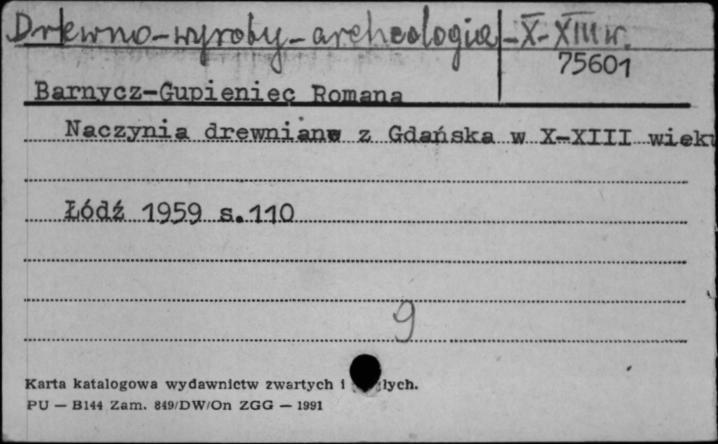 Drewno-wyroby-archeologia-X-XIII w.
75601
Barnycz-Gupieniec Romana
Naczynia drewniane z Gdańska w X-XIII wieku
Łódź 1959 s.110
9
Karta katalogowa wydawnictw zwartych i łych.
PU — B144 Zam. 849/DW/On ZGG — 1991